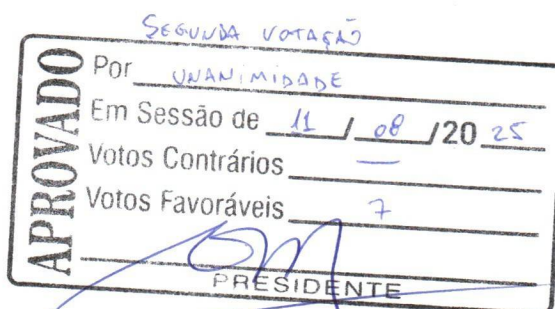 SEGUNDA VOTAÇÃO
APROVADO
Por UNANIMIDADE
Em Sessão de 11 / 08 /20 25
Votos Contrários —
Votos Favoráveis 7
PRESIDENTE